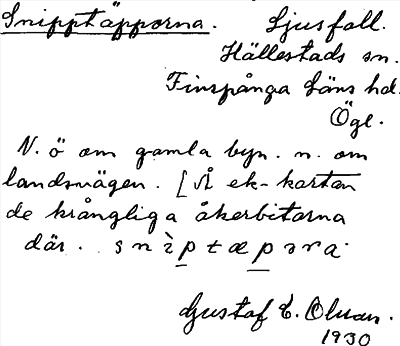 Snipptäpporna. Ljusfall.
Hällestads sn.
Finspånga Läns hd.
Ögl.
N. ö om gamla byn. n. om
landsvägen. [Å ek-kartan
de krångliga åkerbitarna
där. snìptæpəra.
Gustaf E. Olsson.
1930